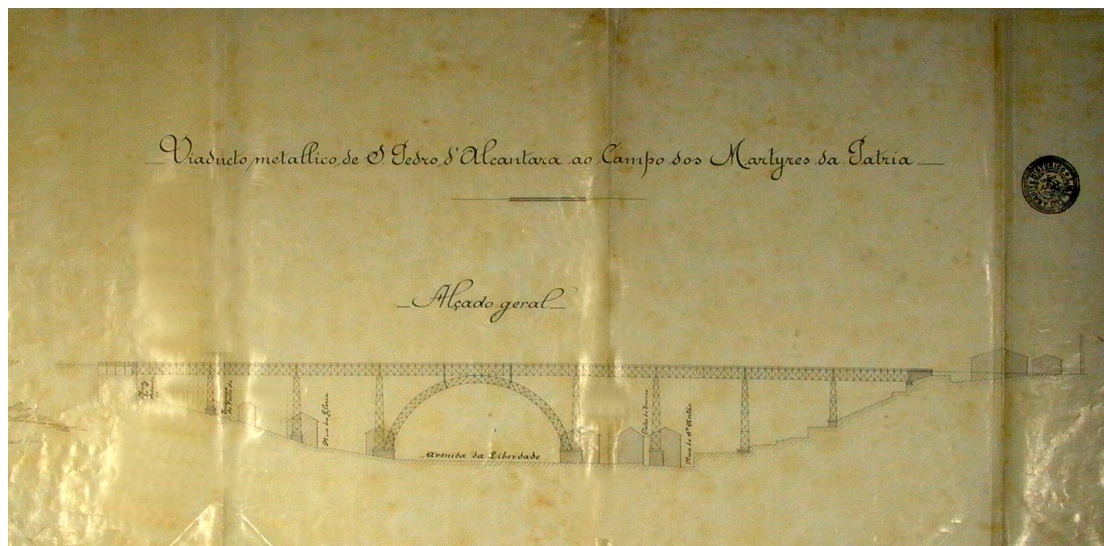 Viaducto metallico de S. Pedro d'Alcantara ao Campo dos Martyres da Patria
Alçado geral
Rua da Gloria
Avenida da Liberdade
Rua de Stº Antão